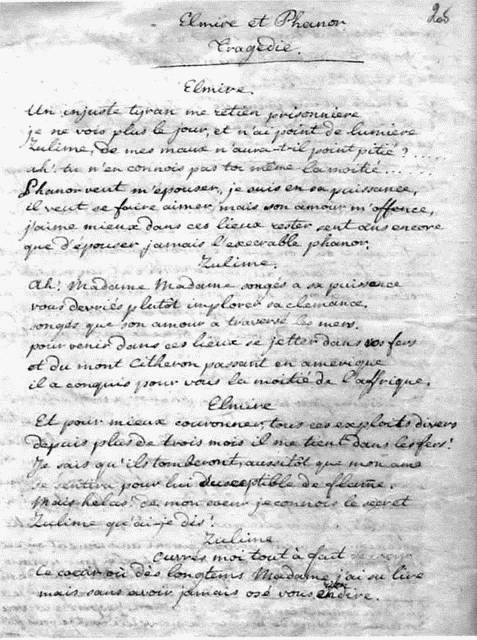 26
Elmire et Phanor
Tragedie.
Elmire.
Un injuste tyran me retien prisonniere
je ne vois plus le jour, et n'ai point de lumiere
Zulime, de mes maux n'aura-t-il point pitié ? ....
ah! tu n'en connois pas toi même la moitié...
Phanor veut m'epouser, je suis en sa puissance,
il veut se faire aimer, mais son amour m'offence,
j'aime mieux dans ces lieux rester sent ans encore
que d'épouser jamais l'execrable phanor.
Zulime.
Ah! Madame Madame songés a sa puissence
vous devriés plutôt implorer sa clemance.
songés que son amour a traversé les mers.
pour venir dans ces lieux se jetter dans vos fers
et du mont Citheron passant en amérique
il a conquis pour vous la moitié de l'affrique.
Elmire
Et pour mieux couronner tous ces exploits divers
depuis plus de trois mois il me tient dans les fers!
Je sais qu'ils tomberont, aussitôt que mon ame
se sentira pour lui susceptible de flamme.
Mais helas! de mon cœur je connois le secret
Zulime qu'ai-je dis!
Zulime
ouvrés moi tout à fait
Ce cœur où dès longtems Madame j'ai su lire
mais sans avoir jamais osé vous en dire.